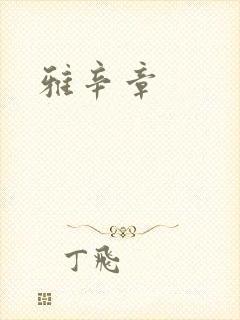 雅辛章
丁飛